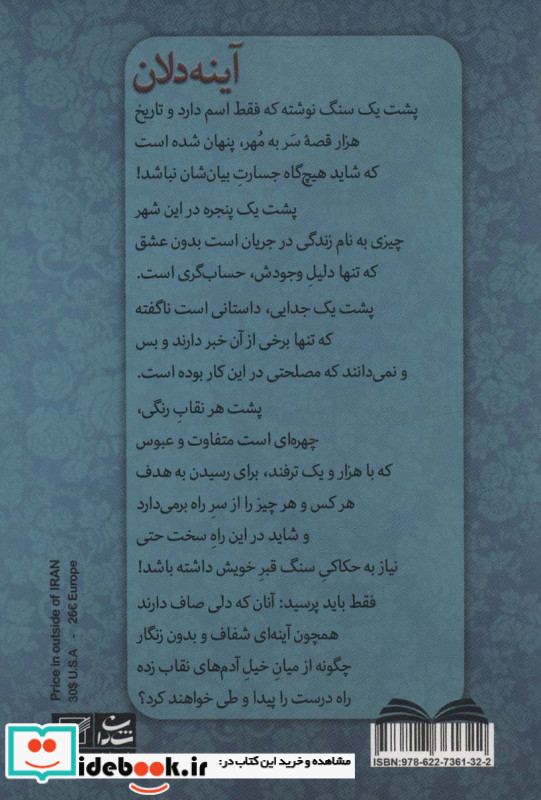 آینه‌دلان
پشت یک سنگ نوشته که فقط اسم دارد و تاریخ
هزار قصهٔ سَر به مُهر، پنهان شده است
که شاید هیچ‌گاه جسارتِ بیان‌شان نباشد!
پشت یک پنجره در این شهر
چیزی به نام زندگی در جریان است بدون عشق
که تنها دلیل وجودش، حساب‌گری است.
پشت یک جدایی، داستانی است ناگفته
که تنها برخی از آن خبر دارند و بس
و نمی‌دانند که مصلحتی در این کار بوده است.
پشت هر نقابِ رنگی،
چهره‌ای است متفاوت و عبوس
که با هزار و یک ترفند، برای رسیدن به هدف
هر کس و هر چیز را از سرِ راه برمی‌دارد
و شاید در این راهِ سخت حتی
نیاز به حکاکیِ سنگ قبرِ خویش داشته باشد!
فقط باید پرسید: آنان که دلی صاف دارند
همچون آینه‌ای شفاف و بدون زنگار
چگونه از میانِ خیلِ آدم‌های نقاب زده
راه درست را پیدا و طی خواهند کرد؟
Price in outside of IRAN
30$ U.S.A - 26€ Europe
ISBN:978-622-7361-32-2
مشاهده و خرید این کتاب در:
idebook.ir